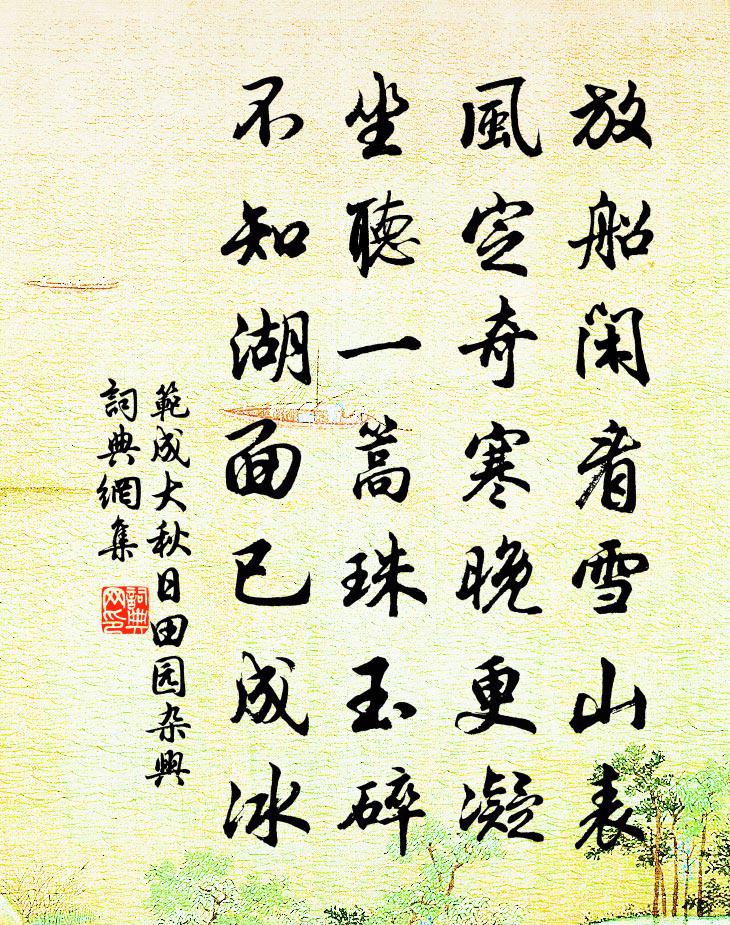 放船閑看雪山表
風定奇寒晚更凝
坐聽一篙珠玉碎
不知湖面已成冰
範成大秋日田园杂興
詞典網集
詞典
网印